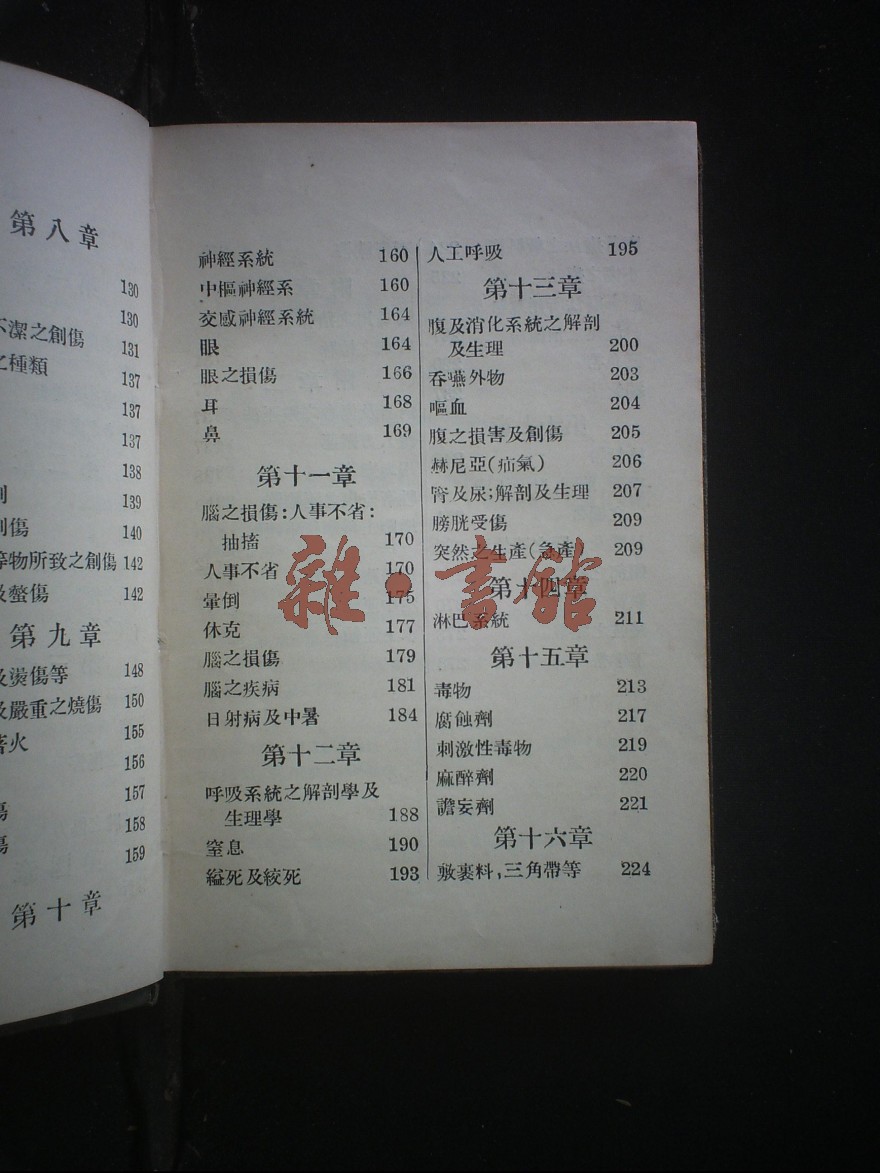 第八章
130
130
不潔之創傷 131
之種類 137
137
137
138
139
創傷 140
等物所致之創傷 142
及螫傷 142
第九章
及燙傷等 148
及嚴重之燒傷 150
著火 155
156
157
傷 158
傷 159
第十章
神經系統 160
中樞神經系 160
交感神經系統 164
眼 164
眼之損傷 166
耳 168
鼻 169
第十一章
腦之損傷:人事不省:
抽搐 170
人事不省 170
暈倒 175
休克 177
腦之損傷 179
腦之疾病 181
日射病及中暑 184
第十二章
呼吸系統之解剖學及
生理學 188
窒息 190
縊死及絞死 193
人工呼吸 195
第十三章
腹及消化系統之解剖
及生理 200
吞嚥外物 203
嘔血 204
腹之損害及創傷 205
赫尼亞(疝氣) 206
腎及尿;解剖及生理 207
膀胱受傷 209
突然之生產(急產) 209
第十四章
淋巴系統 211
第十五章
毒物 213
腐蝕劑 217
刺激性毒物 219
麻醉劑 220
譫妄劑 221
第十六章
敷裹料,三角帶等 224
雜·書館